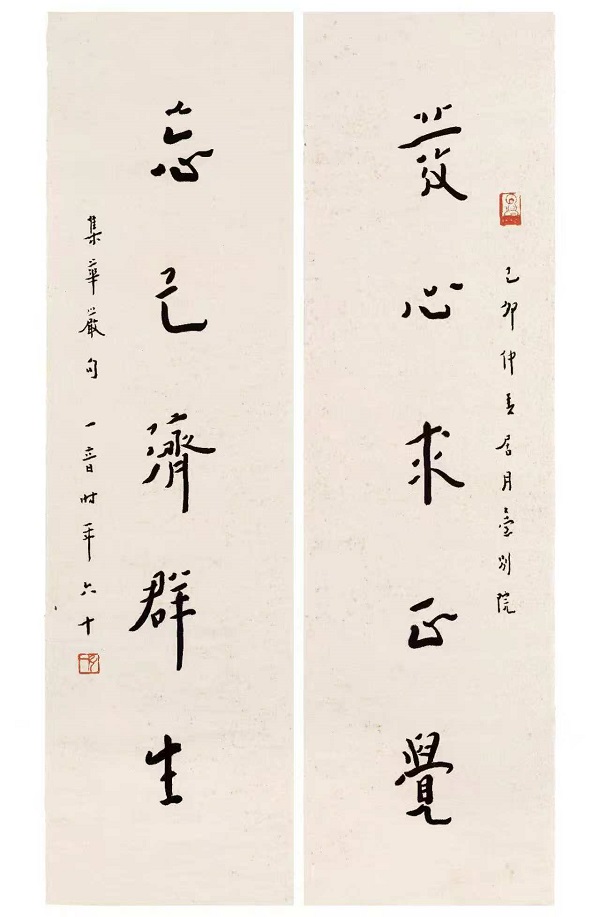 己卯仲春居月臺別院
發心求正覺
忘己濟群生
集華嚴句一音時年六十